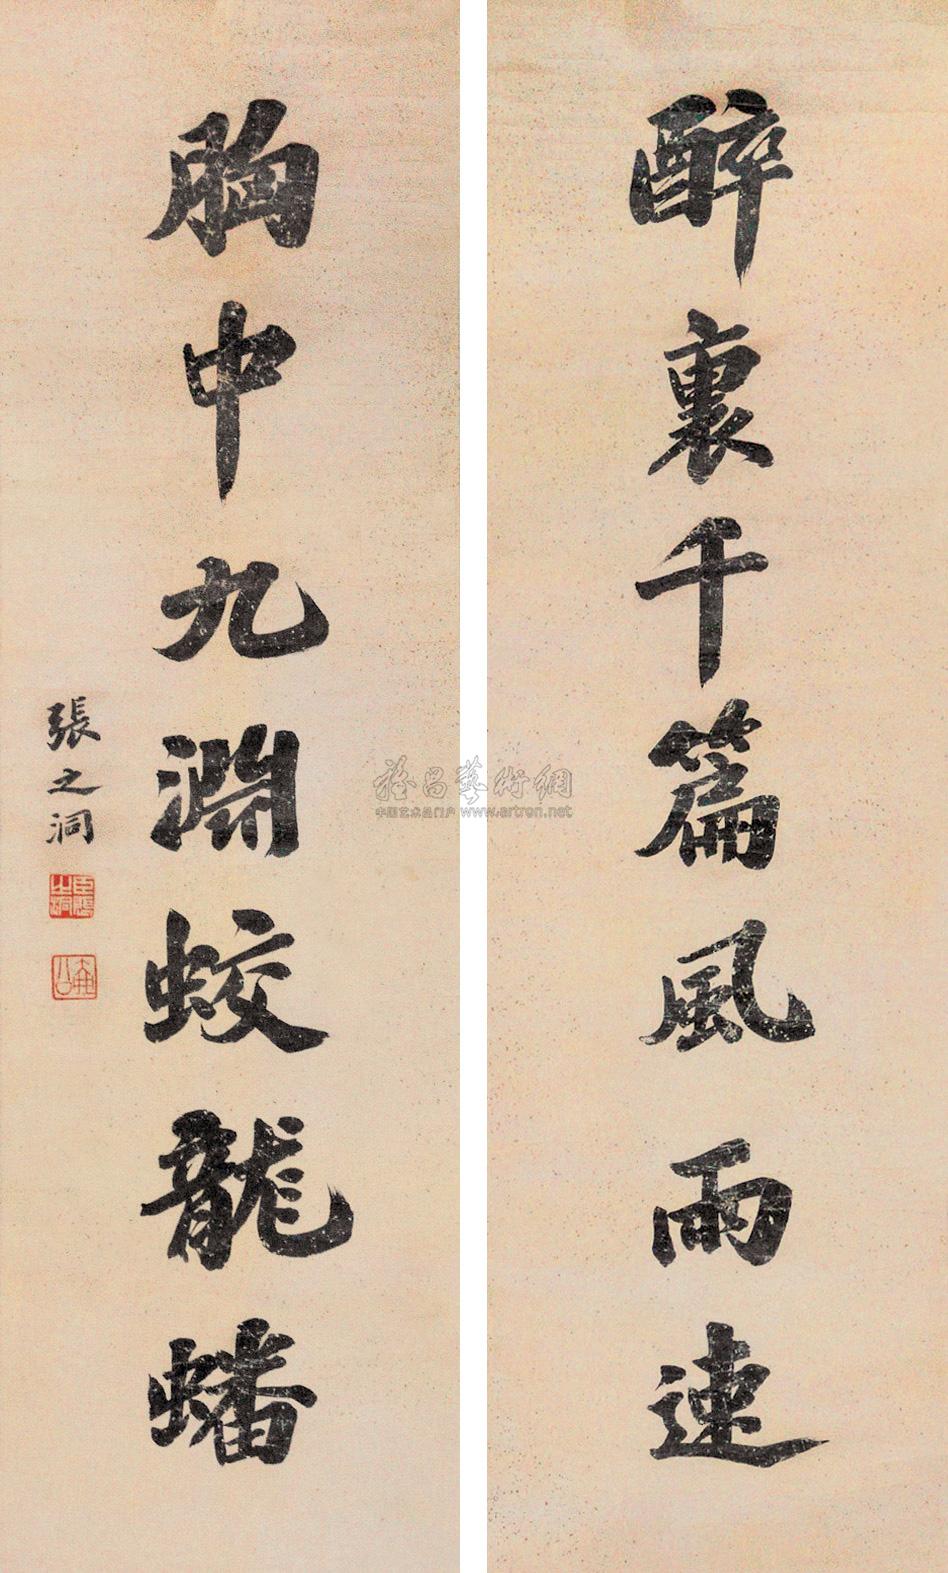 醉裏千篇風雨速
胸中九淵蛟龍蟠
張之洞
雅昌藝術網
中国艺术品门户 www.artron.net